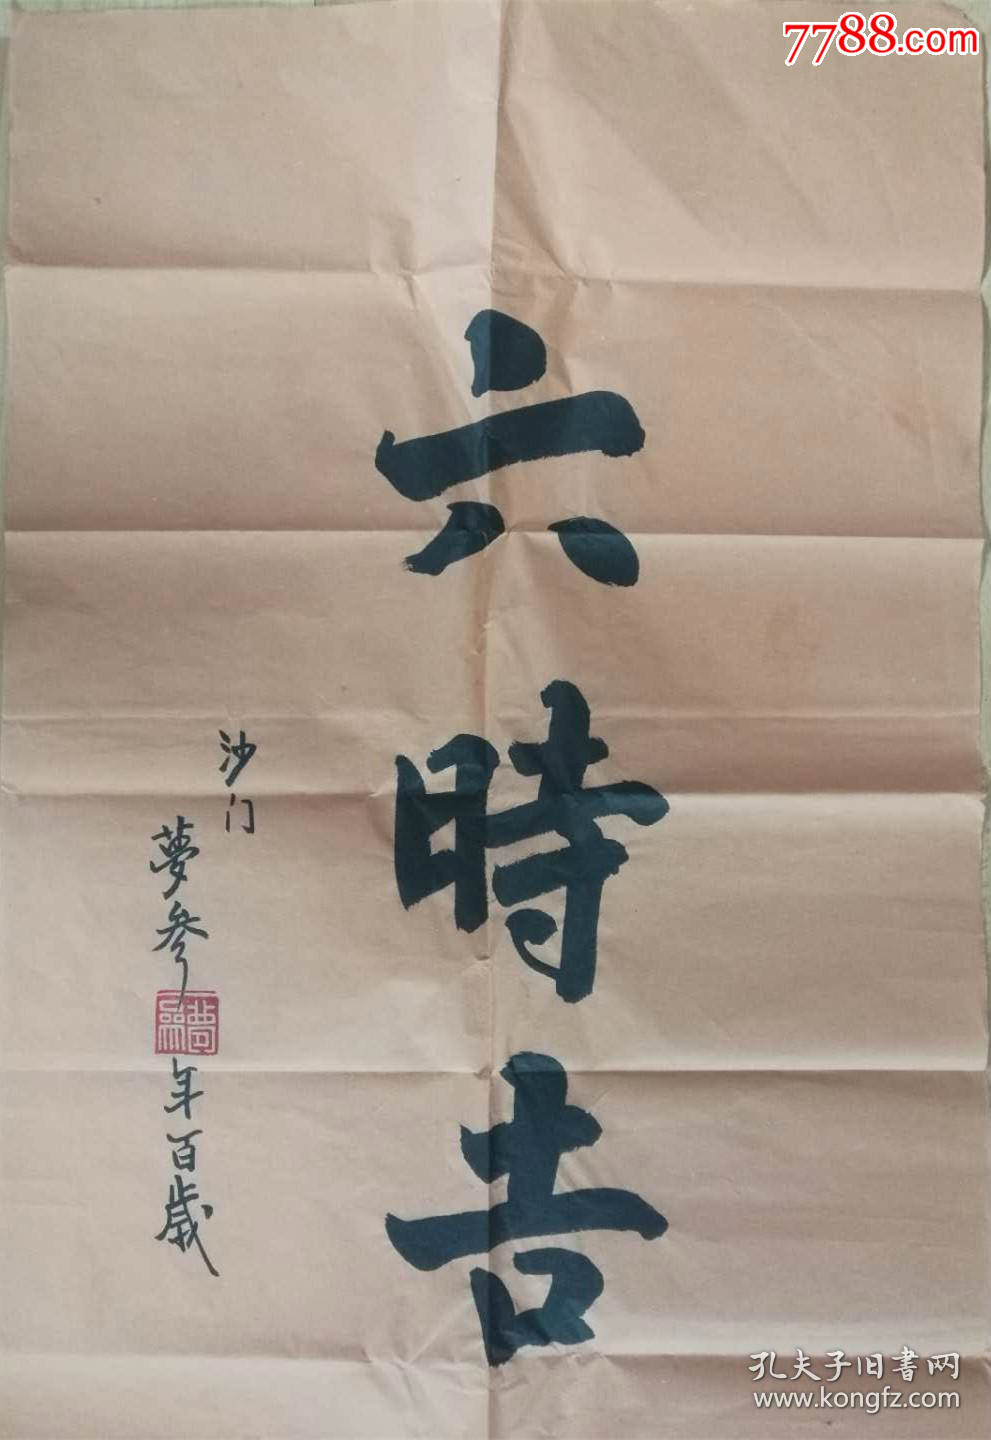 7788.com
六時吉
沙门
夢参
年百歳
孔夫子旧书网
www.kongfz.com